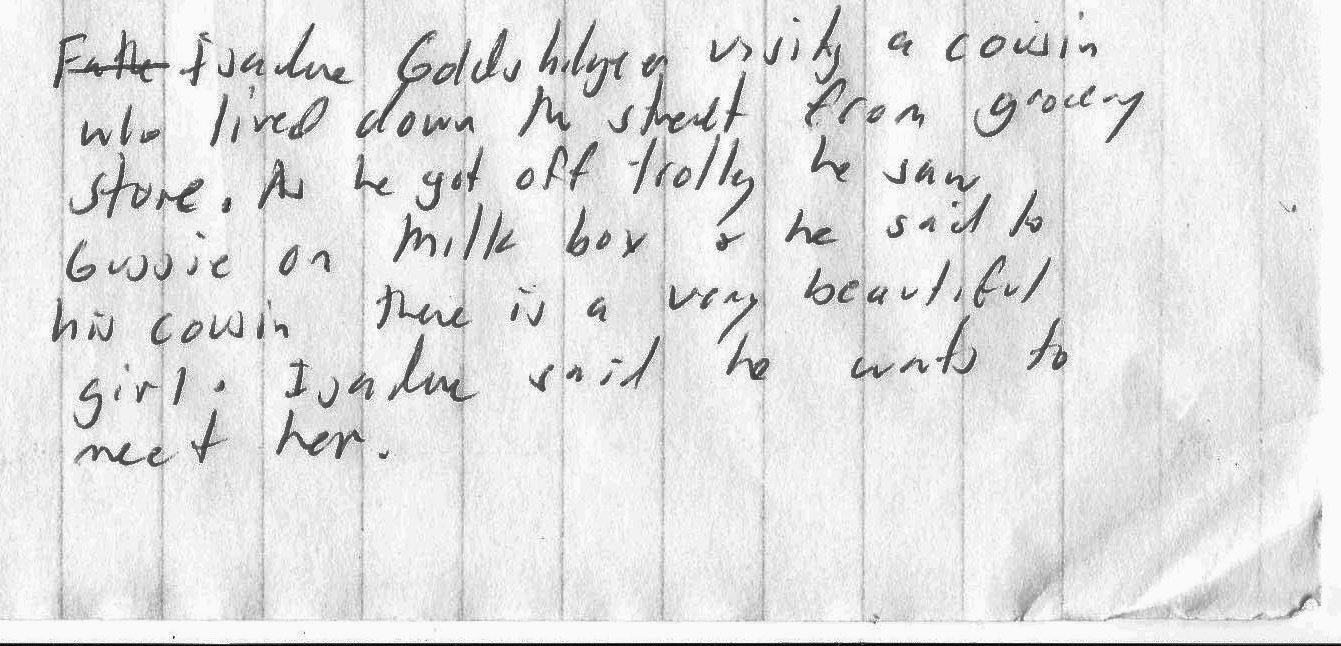 Isadore visiting a cousin
who lived down the street from grocery
store. As he got off trolly he saw
Gussie on milk box & he said to
his cousin there is a very beautiful
girl. Isadore said he wants to
meet her.